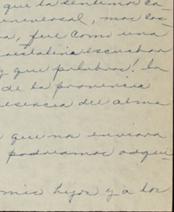 que la sentimos ca
universal, mas los
a, fue como una
escuchar
y que palabras! la
de la provincia
esencia del alma
que no enviara
podriamos adqui-
mis hijos y a los